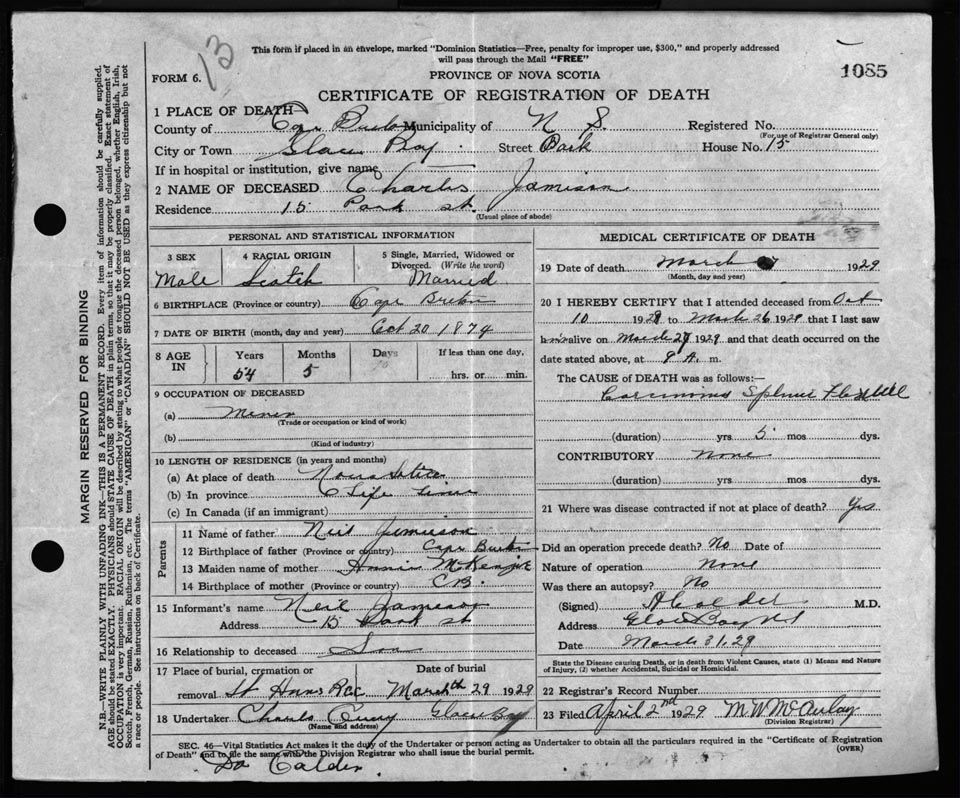 13
This form if placed in an envelope, marked "Dominion Statistics—Free, penalty for improper use, $300," and properly addressed
will pass through the Mail "FREE"
FORM 6.
PROVINCE OF NOVA SCOTIA
1085
CERTIFICATE OF REGISTRATION OF DEATH
1 PLACE OF DEATH
County of Cape Breton Municipality of N S. Registered No.
(For use of Registrar General only)
City or Town Glace Bay Street Park House No. 15
If in hospital or institution, give name
2 NAME OF DECEASED Charles Jamison
Residence 15 Park st.
(Usual place of abode)
PERSONAL AND STATISTICAL INFORMATION
3 SEX 4 RACIAL ORIGIN 5 Single, Married, Widowed or Divorced. (Write the word)
Male Scotch Married
6 BIRTHPLACE (Province or country) Cape Breton
7 DATE OF BIRTH (month, day and year) Oct 20 1874
8 AGE IN Years Months Days If less than one day,
54 5 hrs. or min.
9 OCCUPATION OF DECEASED
(a) Miner
(Trade or occupation or kind of work)
(b)
(Kind of industry)
10 LENGTH OF RESIDENCE (in years and months)
(a) At place of death Nova Scotia
(b) In province Life time
(c) In Canada (if an immigrant)
Parents
11 Name of father Neil Jamieson
12 Birthplace of father (Province or country) Cape Breton
13 Maiden name of mother Annie McKenzie
14 Birthplace of mother (Province or country) C B.
15 Informant's name Neil Jamieson
Address 15 Park st
16 Relationship to deceased Son
17 Place of burial, cremation or Date of burial
removal St Anns March 29 1929
18 Undertaker Charles Curry Glace Bay
(Name and address)
MEDICAL CERTIFICATE OF DEATH
19 Date of death March 1929
(Month, day and year)
20 I HEREBY CERTIFY that I attended deceased from Oct
10 1928 to March 26 1929 that I last saw
him alive on March 1929 and that death occurred on the
date stated above, at 9 A. m.
The CAUSE of DEATH was as follows:—
Carcinoma
(duration) yrs 5 mos dys.
CONTRIBUTORY None
(duration) yrs. mos. dys.
21 Where was disease contracted if not at place of death? Yes
Did an operation precede death? No Date of
Nature of operation None
Was there an autopsy? No
(Signed) M.D.
Address Glace Bay NS
Date March 31, 29
State the Disease causing Death, or in death from Violent Causes, state (1) Means and Nature
of Injury, (2) whether Accidental, Suicidal or Homicidal.
22 Registrar's Record Number
23 Filed April 2nd 1929 M W McAulay
(Division Registrar)
SEC. 46—Vital Statistics Act makes it the duty of the Undertaker or person acting as Undertaker to obtain all the particulars required in the "Certificate of Registration
of Death" and to file the same with the Division Registrar who shall issue the burial permit.
(OVER)
Calder
MARGIN RESERVED FOR BINDING
N.B.—WRITE PLAINLY WITH UNFADING INK—THIS IS A PERMANENT RECORD. Every item of information should be carefully supplied.
AGE should be stated EXACTLY. PHYSICIANS should STATE CAUSE OF DEATH in plain terms, so that it may be properly classified. Exact statement of
OCCUPATION is very important. RACIAL ORIGIN will be described by stating to what people or tongue the deceased person belonged, whether English, Irish,
Scotch, French, German, Russian, Ruthenian, etc. The terms "AMERICAN" or "CANADIAN" SHOULD NOT BE USED as they express citizenship but not
a race or people. See instructions on back of Certificate.